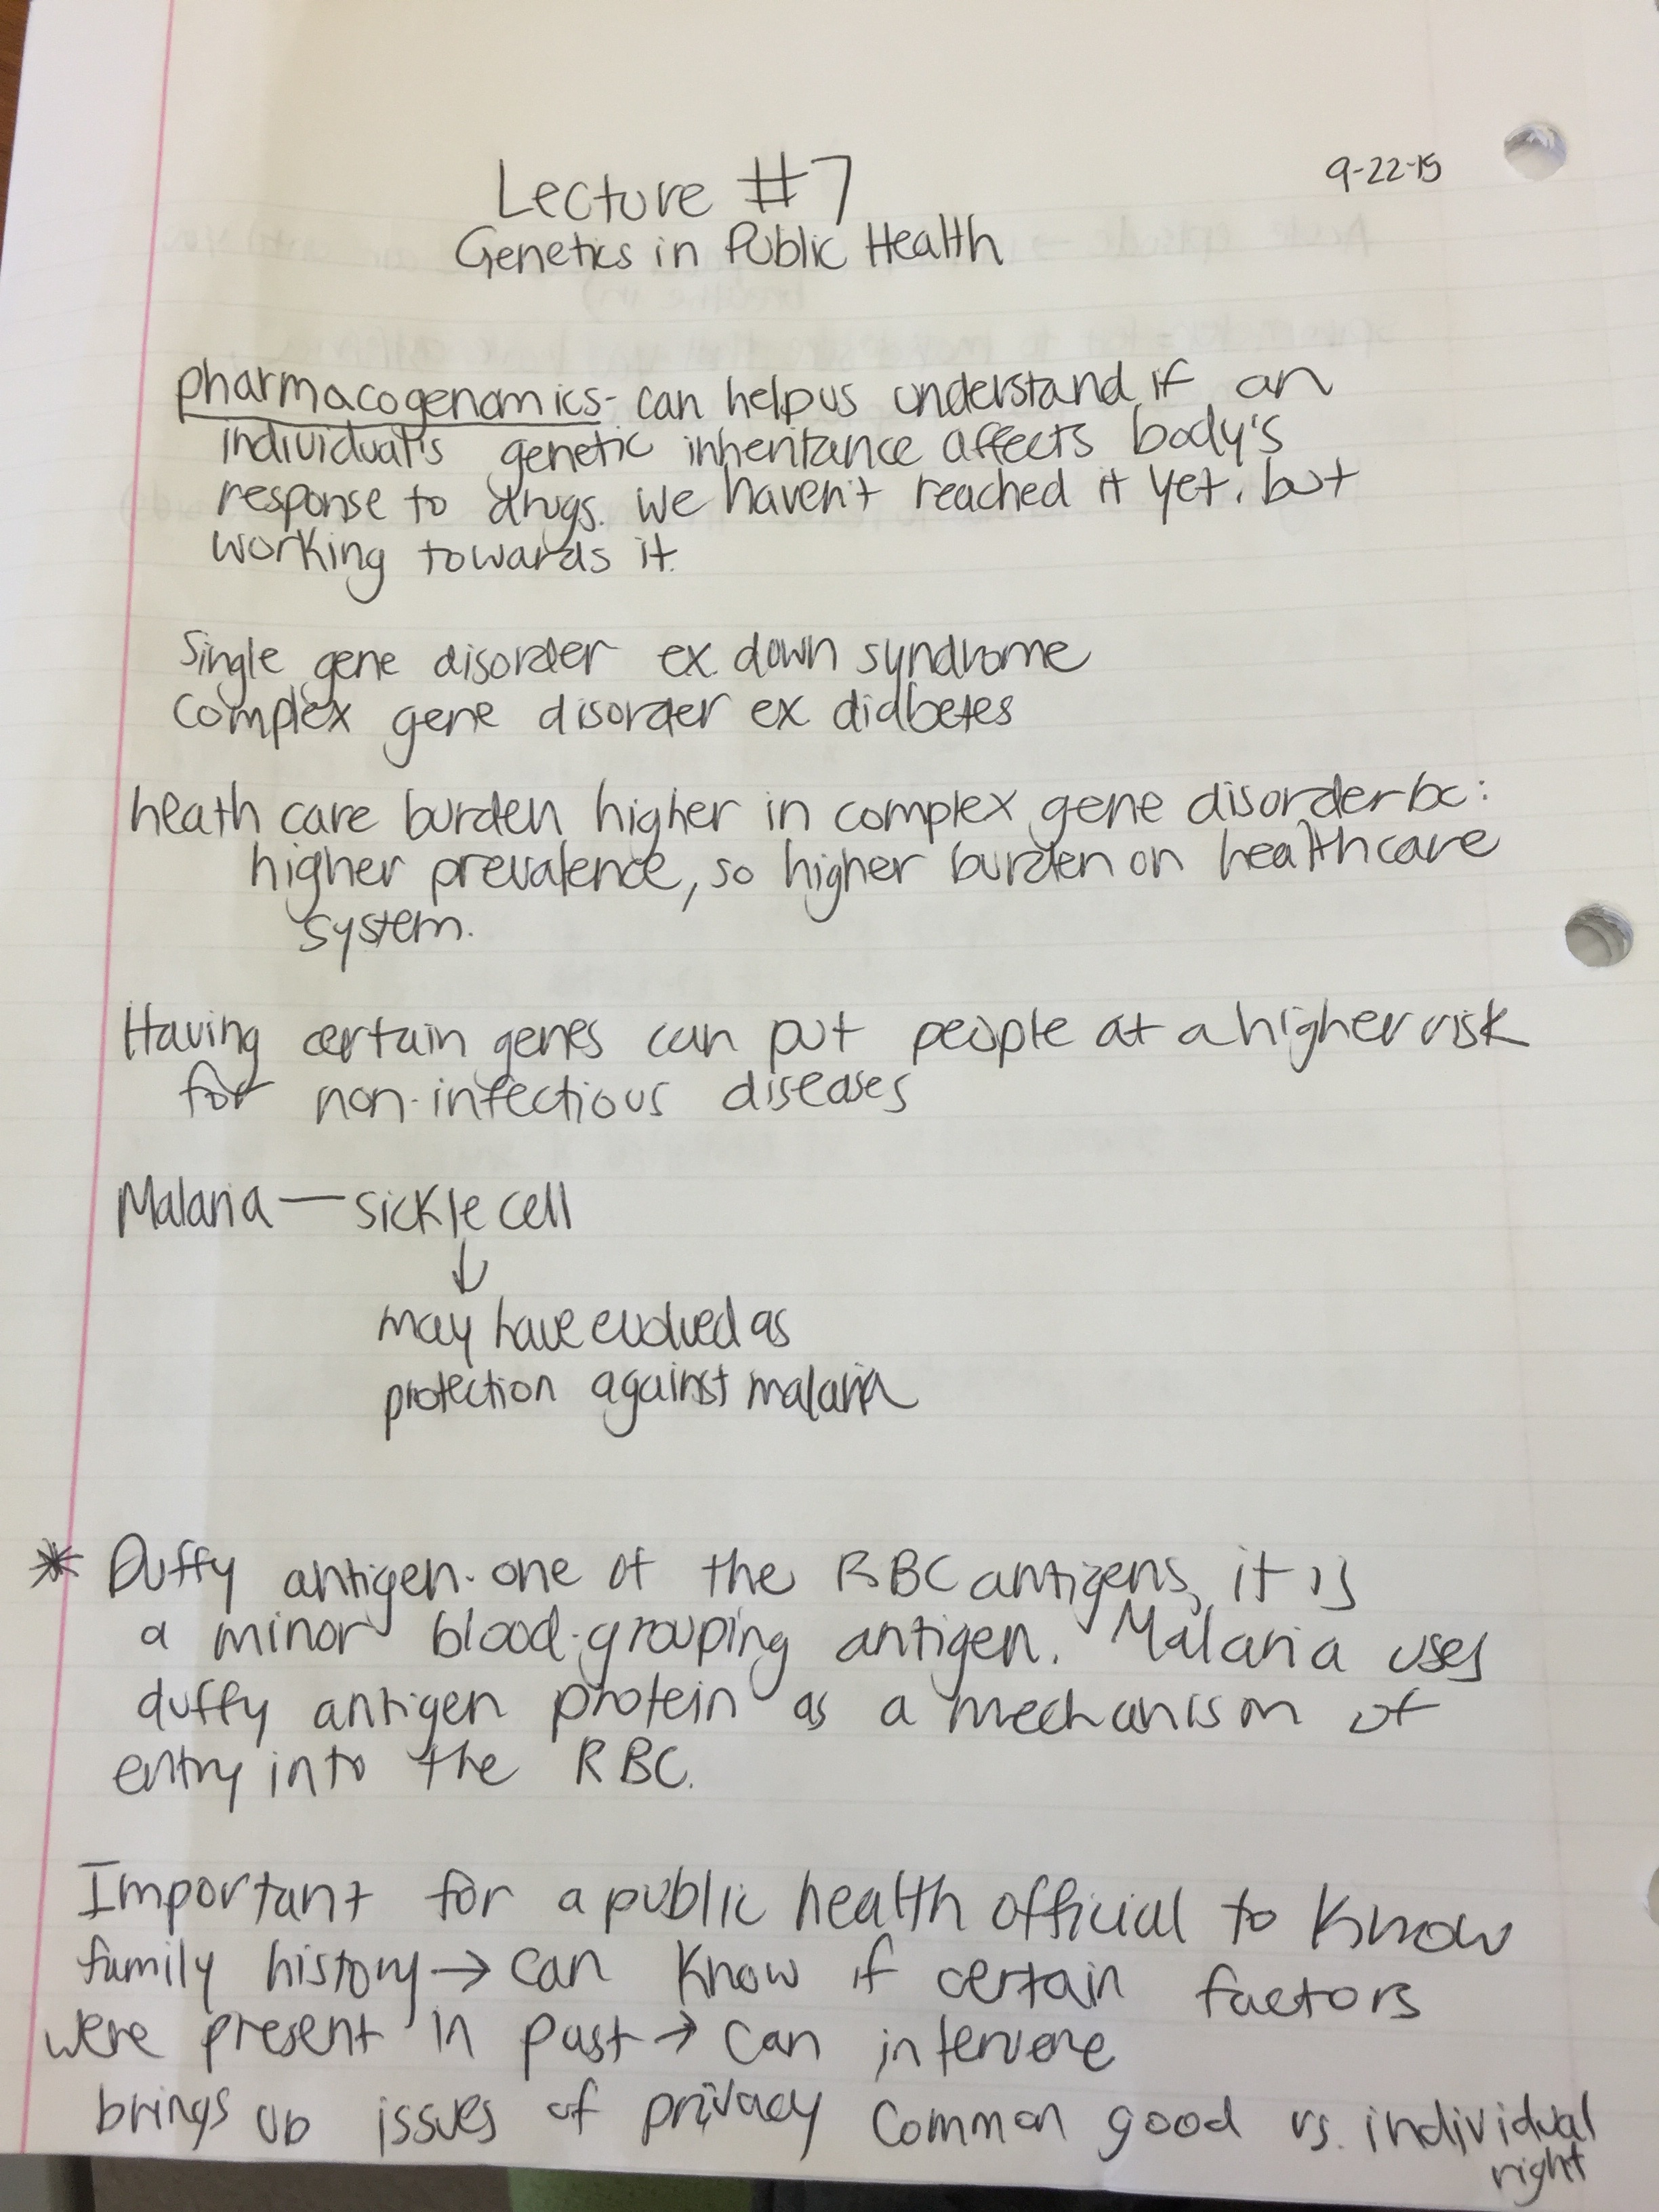 Lecture #7
9-22-15
Genetics in Public Health
pharmacogenomics- can help us understand if an
individual's genetic inheritance affects body's
response to drugs. We haven't reached it yet, but
working towards it.
Single gene disorder ex. down syndrome
complex gene disorder ex diabetes
heath care burden higher in complex gene disorder bc:
higher prevalence, so higher burden on healthcare
system.
Having certain genes can put people at a higher risk
for non-infectious diseases
Malaria — sickle cell
↓
may have evolved as
protection against malaria
* Duffy antigen- one of the RBC antigens, it is
a minor blood-grouping antigen. Malaria uses
duffy antigen protein as a mechanism of
entry into the RBC.
Important for a public health official to know
family history → can know if certain factors
were present in past → can intervene
brings up issues of privacy common good vs. individual
right